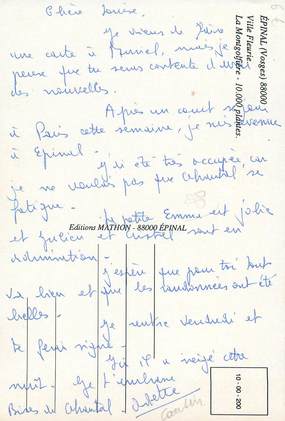 Chère Louise.
Je viens de faire
une carte à Muriel, mais je
pense que tu seras contente d'avoir
des nouvelles.
Après un court séjour
à Paris cette semaine, je suis venue
à Epinal.
J'ai été très occupée, car
je ne voulais pas que Chantal se
fatigue.
La petite Emma est jolie
et Julien et Cristel sont en
admiration.
J'espère que pour toi tout
va bien et que les randonnées ont été
belles.
Je rentre vendredi et
te ferai signe.
Ici il a neigé cette
nuit. Je t'embrasse
Bises de Chantal
ÉPINAL (Vosges) 88000
Ville Fleurie...
La Mongolfière - 10.000 plantes.
Editions MATHON - 88000 ÉPINAL
10-00-200